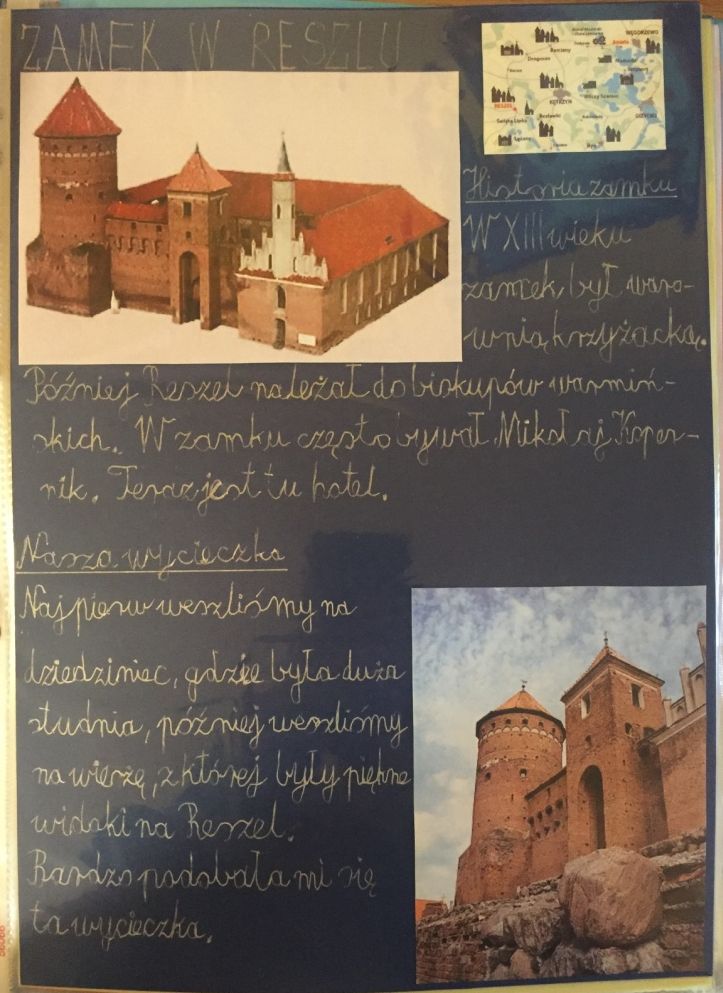 ZAMEK W RESZLU
WĘGORZEWO
Barciany
Drogosze
KĘTRZYN
RESZEL
Święta Lipka
GIŻYCKO
Ryn
Historia zamku
W XIII wieku
zamek był waro-
wnią krzyżacką.
Później Reszel należał do biskupów warmiń-
skich. W zamku często bywał Mikołaj Koper-
nik. Teraz jest tu hotel.
Nasza wycieczka
Najpierw weszliśmy na
dziedziniec, gdzie była duża
studnia, później weszliśmy
na wieżę, z której były piękne
widoki na Reszel.
Bardzo podobała mi się
ta wycieczka.